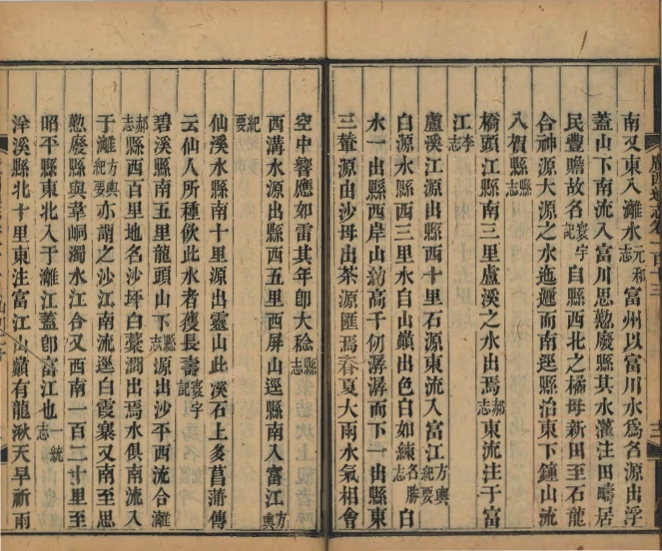 南又東入灕水元和志富州以富川水爲名源出浮
蓋山下南流入富川思懃廢縣其水灌注田疇居
民豐贍故名寰宇記自縣西北之橘母新田至石龍
合神源大源之水迤邐而南逕縣治東下鐘山流
入賀縣縣志
橋頭江縣南三里盧溪之水出焉郝志東流注于富
江李志
盧溪江縣西十里石源東流入富江方輿紀要
白源水縣西三里水自山巔出色白如練名勝志白
水一出縣西岸山約高千仞潺潺而下一出縣東
三輦源由沙母出茶源匯焉春夏大雨水氣相會
空中響應如雷其年卽大稔縣志
西溝水源出縣西五里西屏山逕縣南入富江方輿
紀要
仙溪水縣南十里源出靈山此溪石上多菖蒲傳
云仙人所種飲此水者獲長壽寰宇記
碧溪縣南五里龍頭山下縣志源出沙平西流合灕
郝志縣西百里地名沙坪白藁澗出焉水俱南流入
于灕方輿紀要亦謂之沙江南流逕白霞寨又南至思
懃廢縣與韋峒濁水江合又西南一百二十里至
昭平縣東北入于灕江蓋卽富江也一統志
淬溪縣北十里東注富江山巔有龍湫天旱祈雨